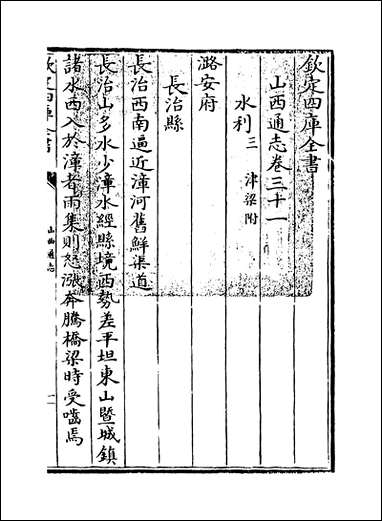 欽定四庫全書
山西通志卷三十一
水利三 津梁附
潞安府
長治縣
長治西南逼近漳河舊鮮渠道
長治山多水少漳水經縣境西勢差平坦東山暨城鎮
諸水西入於漳者雨集則怒漲奔騰橋梁時受嚙焉
欽定四庫全書
山西通志
一